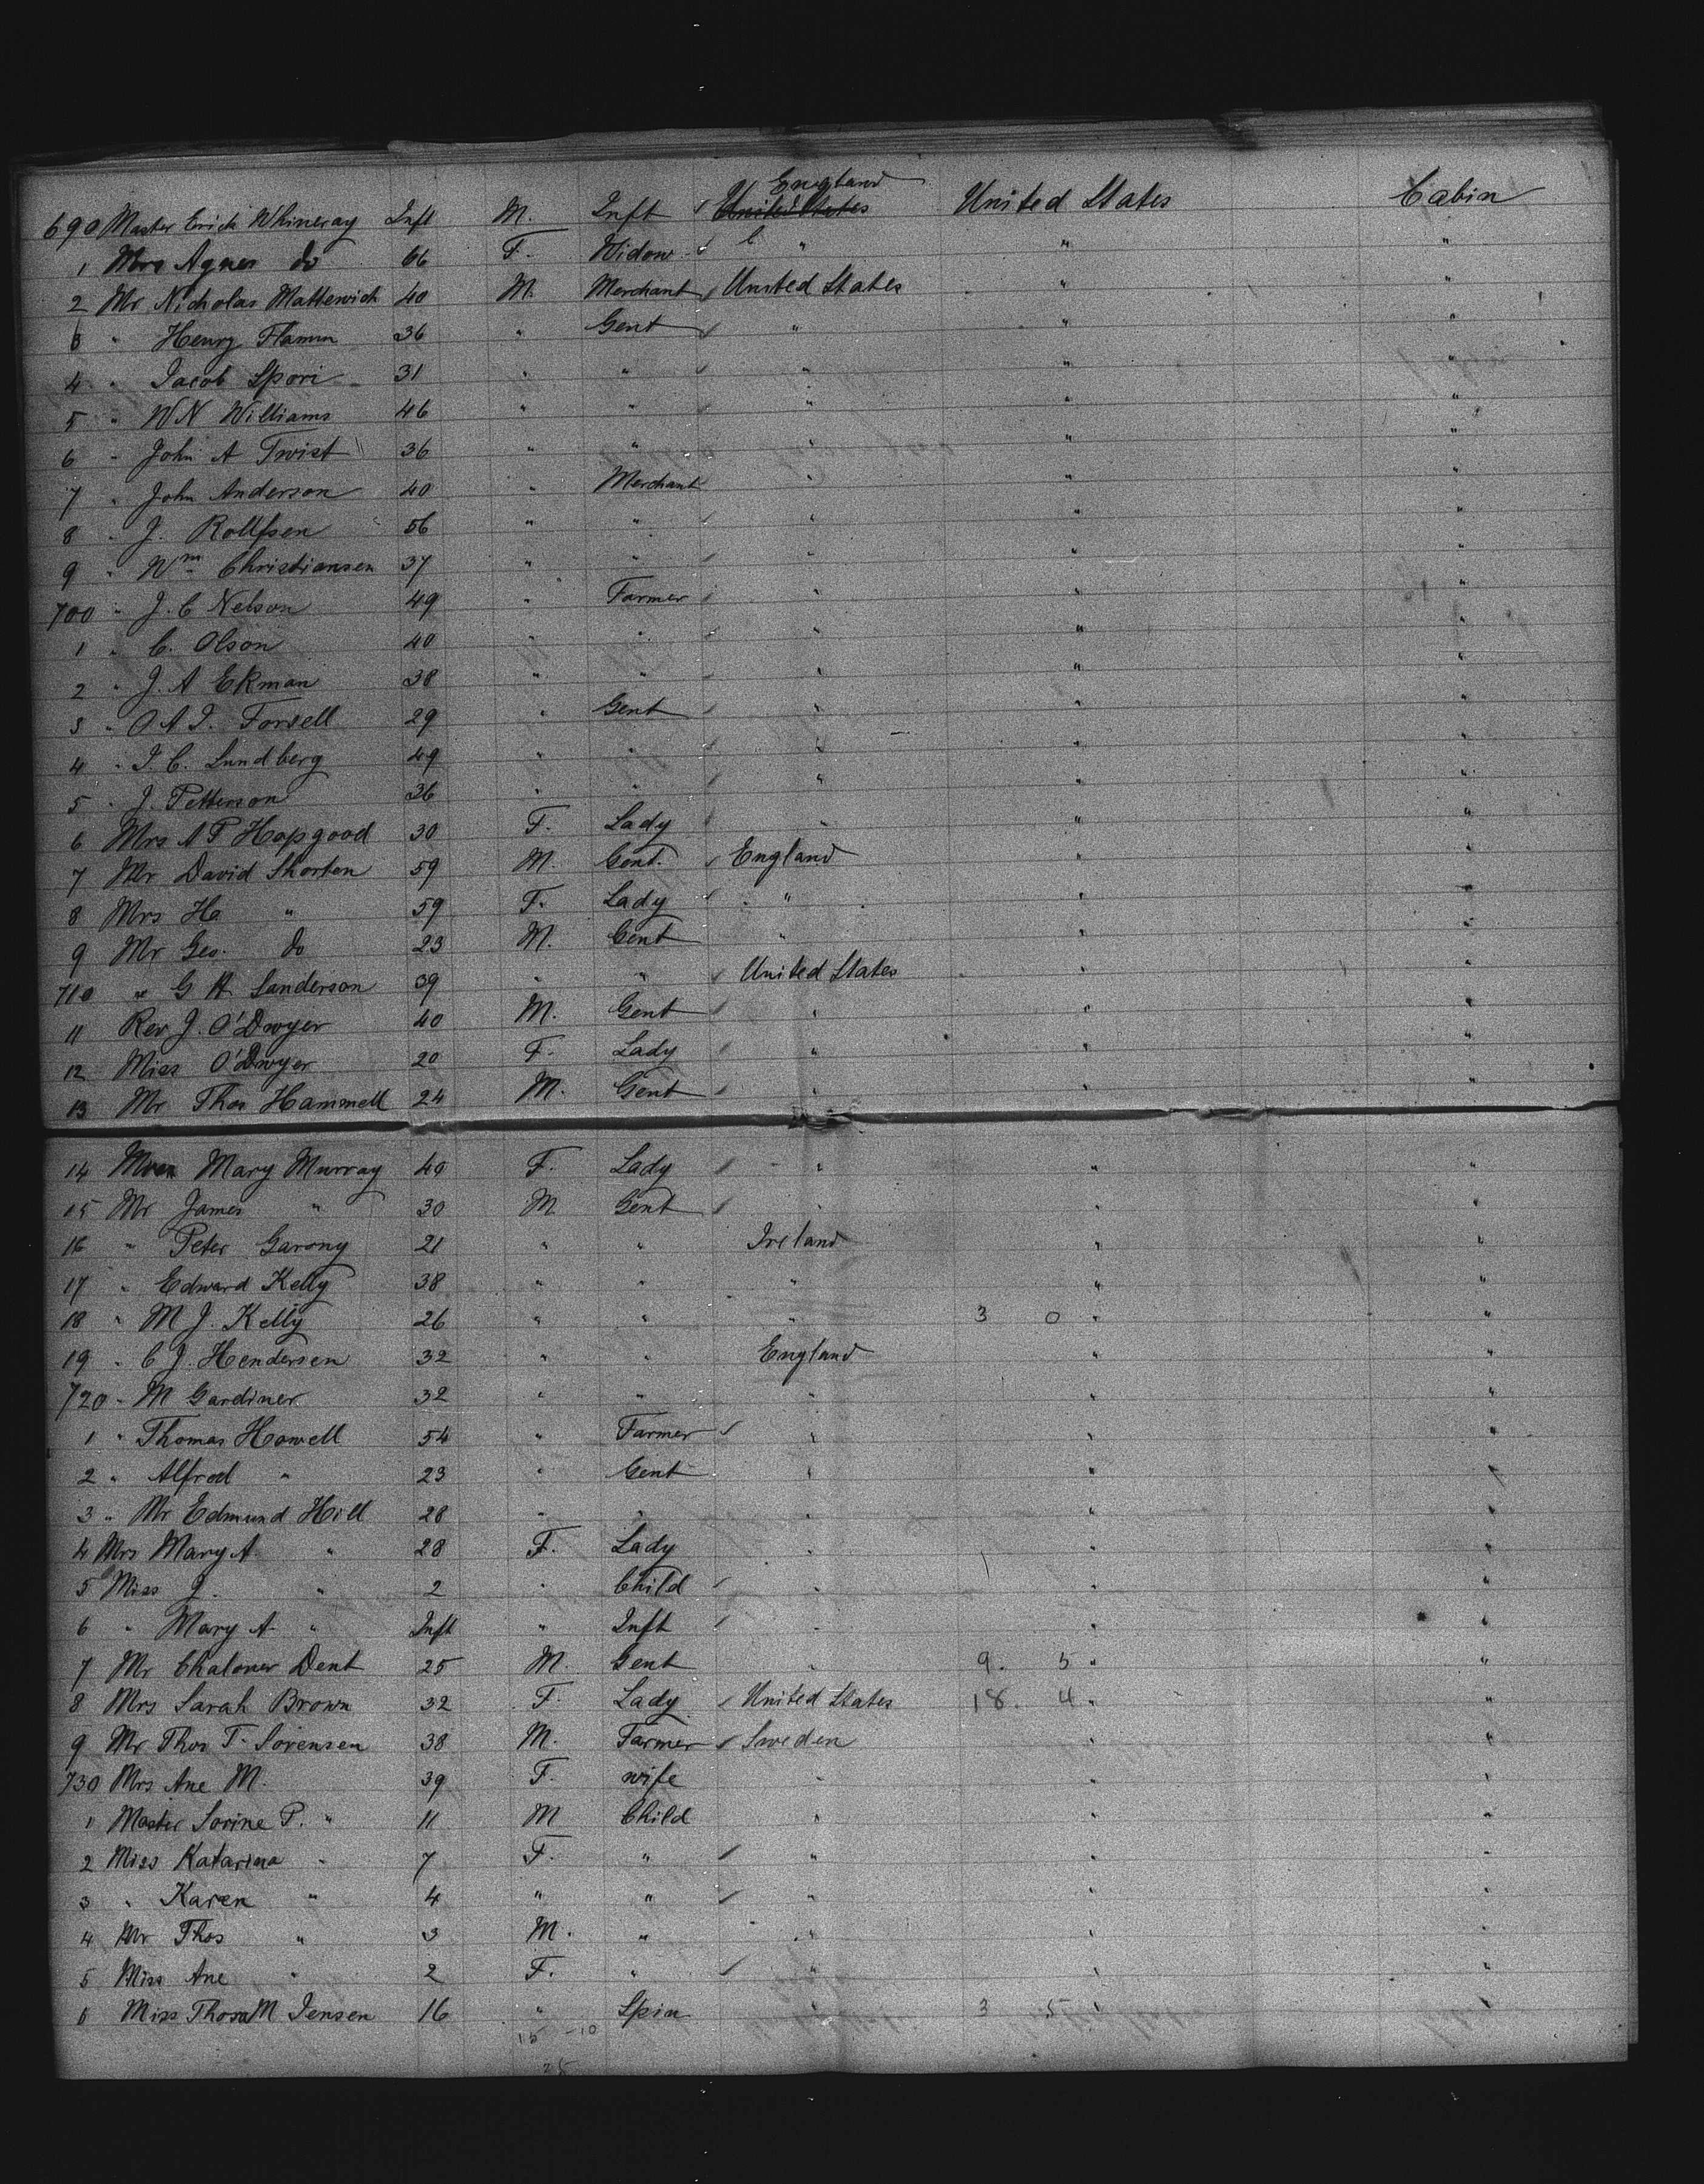 England
690 Master Erich Whineray Inft M. Inft ✓ United States United States Cabin
1 Mrs Agnes do 66 F. Widow ✓ " " "
2 Mr Nicholas Mattewich 40 M. Merchant ✓ United States " "
3 " Henry Flamm 36 " Gent ✓ " " "
4 " Jacob Spori 31 " " ✓ " " "
5 " W N Williams 46 " " ✓ " " "
6 " John A Twist 36 " " " " "
7 " John Anderson 40 " Merchant " " "
8 " J. Rollfsen 56 " " ✓ " " "
9 " Wm Christiansen 37 " " ✓ " " "
700 " J. C Nelson 49 " Farmer ✓ " " "
1 " C. Olson 40 " " ✓ " " "
2 " J. A Ekman 38 " " ✓ " " "
3 " O A I. Forsell 29 " Gent ✓ " " "
4 " I. C. Lundberg 49 " " ✓ " " "
5 " J. Petterson 36 " " ✓ " " "
6 Mrs A P Hapgood 30 F. Lady ✓ " " "
7 Mr David Shorten 59 M. Gent. ✓ England " "
8 Mrs H. " 59 F. Lady ✓ " " "
9 Mr Geo. do 23 M. Gent " " "
710 " G H Sanderson 39 " " ✓ United States " "
11 Rev J. O'Dwyer 40 M. Gent ✓ " " "
12 Miss O'Dwyer 20 F. Lady ✓ " " "
13 Mr Thos Hammell 24 M. Gent ✓ " " "
14 Mary Murray 40 F. Lady ✓ " " "
15 Mr James " 30 M Gent ✓ " " "
16 " Peter Garony 21 " " Ireland " "
17 " Edward Kelly 38 " " " " "
18 " M J. Kelly 26 " " " 3 0 " "
19 " C J. Hendersen 32 " " England " "
720 " M Gardiner 32 " " " " "
1 " Thomas Howell 54 " Farmer ✓ " " "
2 " Alfred " 23 " Gent " " "
3 " Mr Edmund Hill 28 " " " " "
4 Mrs Mary A. " 28 F. Lady " " "
5 Miss J. " 2 " Child ✓ " " "
6 " Mary A. " Inft " Inft ✓ " " "
7 Mr Chaloner Dent 25 M. Gent " 9. 5 " "
8 Mrs Sarah Brown 32 F. Lady ✓ United States 18. 4 " "
9 Mr Thos T. Sorensen 38 M. Farmer ✓ Sweden " "
730 Mrs Ane M. 39 F. wife " " "
1 Master Sorine P. " 11 M Child " " "
2 Miss Katarina " 7 F. " ✓ " " "
3 " Karen " 4 " " ✓ " " "
4 Mr Thos " 3 M. " " " "
5 Miss Ane " 2 F. " ✓ " " "
6 Miss Thora M Jensen 16 " Spin " 3 5 " "
15 -10
25